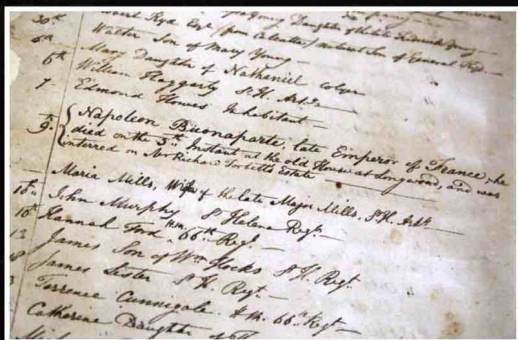 20th David Kyd Esqr. (from Calcutta) natural Son of General Kyd
6th Walter Son of Mary Young
6th Mary Daughter of Nathaniel
William Haggerty St H. Arty.
7 Edmond Howes Inhabitant
9th Napoleon Buonaparte, late Emperor of France, he
died on the 5th Instant at the old House at Longwood, and was
interred on Mr Richard Torbetts Estate
Maria Mills, Wife of the late Major Mills, St H. Arty.
10th John Murphy St Helena Regt.
10th Hannah Ford, 66th Regt.
12 James Son of Wm Hocks St H. Regt.
James Lester St H. Regt.
Terrence Cunnigale H.M. 66th Regt
Catherine Daughter of